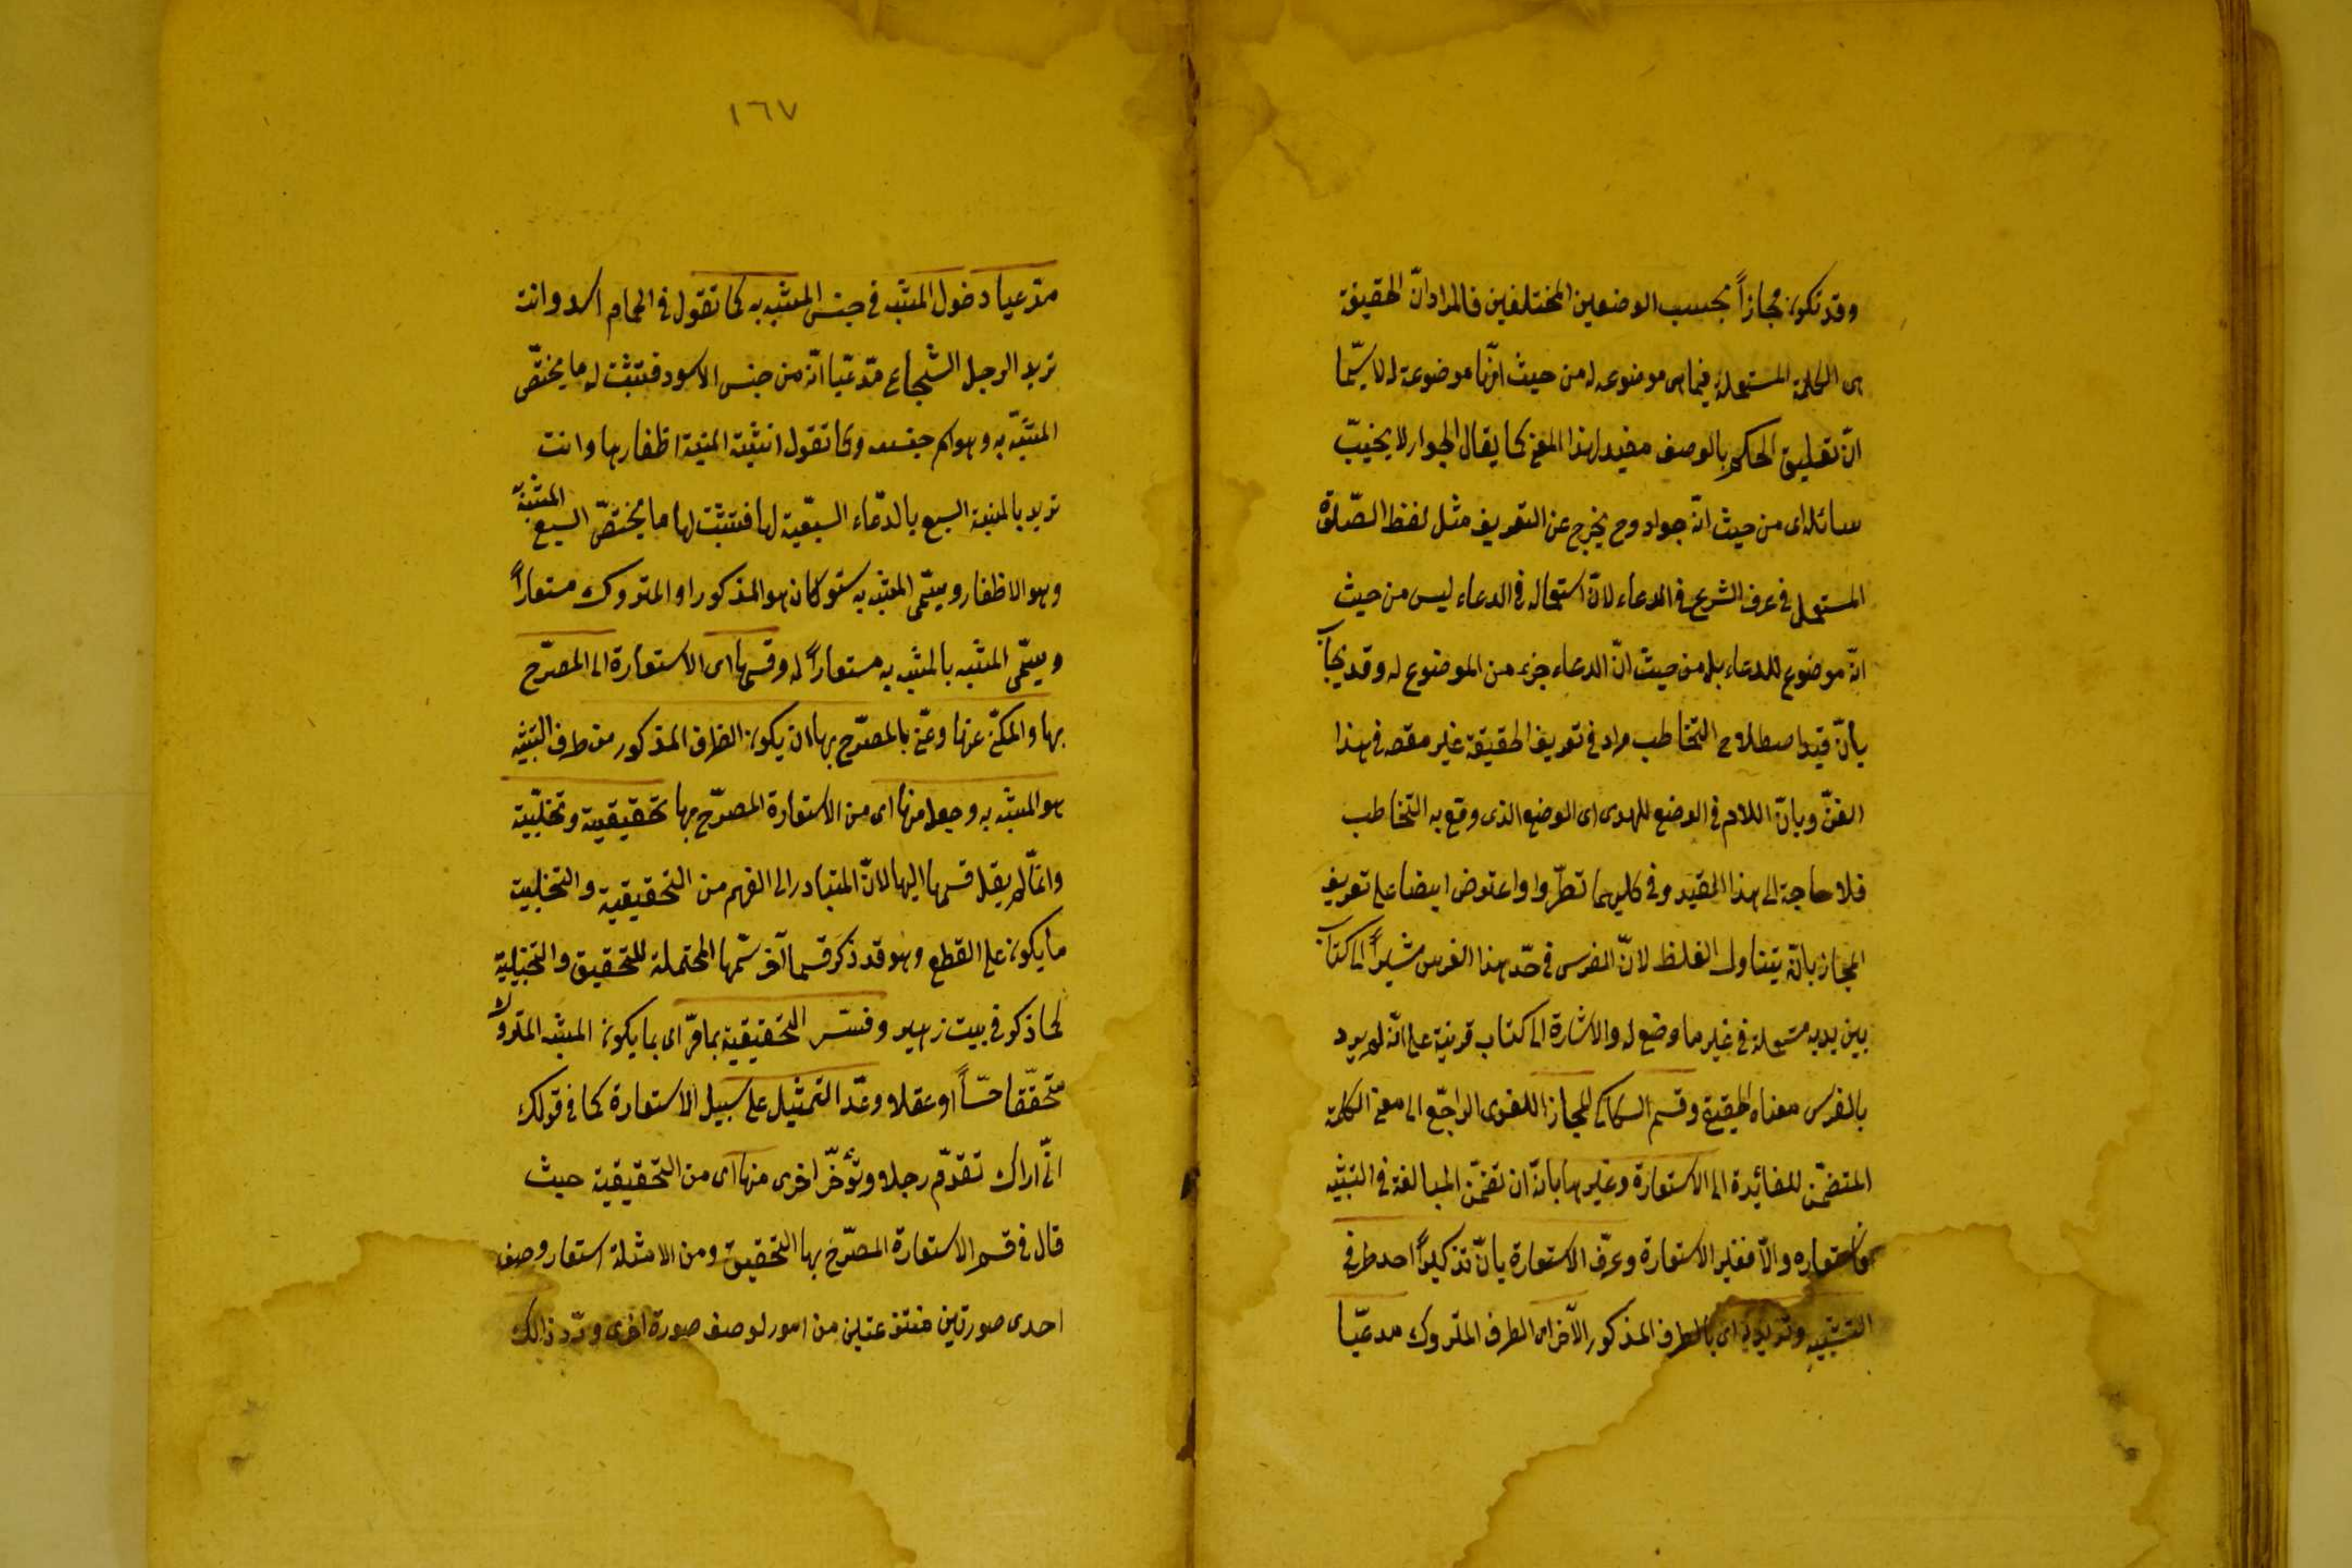 وقد تكون مجازاً بحسب الوضعين المختلفين فالمراد انّ الحقيقة
هى الكلمة المستعملة فيما هى موضوعه له من حيث انّها موضوعة له لا سيّما
انّ تعليق الحكم بالوصف مفيد لهذا المعنى كما يقال الجواد لا يخيّب
سائله اى من حيث انّه جواد وح يخرج عن التعريف مثل لفظ الصّلوة
المستعمل فى عرف الشرع فى الدعاء لانّ استعماله فى الدعاء ليس من حيث
انّه موضوع للدعاء بل من حيث انّ الدعاء جزء من الموضوع له وقد يجاب
بانّ قيد اصطلاح التخاطب مراد فى تعريف الحقيقة غير مقصه فى هذا
الفنّ وبانّ اللام فى الوضع للهدى اى الوضع الذى وقع به التخاطب
فلا حاجة الى هذا القيد وفى كليهما نظر واعترض ايضا على تعريف
المجاز بانّه يتناول الغلط لانّ الفرس فى خذ هذا الفرس مشيراً الى كتاب
بين يديه مستعملة فى غير ما وضع له والاشارة الى كتاب قرينة على انّه لم يرد
بالفرس معناه الحقيقى وقسم السكاكى المجاز اللغوى الراجع الى معنى الكلمة
المتضمّن للفائدة الى الاستعارة وغيرها بانّه ان تضمّن المبالغة فى التشبيه
فاستعاره والّا فغير الاستعارة وعرّف الاستعارة بانّ تذكر احد طرفى
التشبيه وتريد به اى بالطرف المذكور الآخر اى الطرف المتروك مدعيّا
١٦٧
مدّعيا دخول المشبّه فى جنس المشبه به كما تقول فى الحمام اسد وانت
تريد الرجل الشجاع مدّعيّا انّه من جنس الاسود فتثبت له ما يختصّ
المشبّه به وهو اسم جنسه وكما تقول انشبت المنيّة اظفارها وانت
تريد بالمنية السبع بادّعاء السبعيّة لها فتثبت لها ما يختصّ السبع المشبّه
وهو الاظفار ويسمّى المشبه به سوّ كان هو المذكور او المتروك مستعاراً
ويسمّى المشبه بالمشبه به مستعاراً له وقسمها اى الاستعارة الى المصرّح
بها والمكنّى عنها وعنى بالمصرّح بها ان يكون الطرف المذكور من طرفى التشبيه
هو المشبه به وجعل منها اى من الاستعارة المصرّح بها تحقيقية وتخيّلية
وانّما لم يقل قسمها اليها لانّ المتبادر الى الفهم من التحقيقية والتخييلية
ما يكون على القطع وهو قد ذكر قسما آخر سمّها المحتملة للتحقيق والتخييلية
كما ذكر فى بيت زهير وفسّر التحقيقية بما مرّ اى بما يكون المشبه المتروك
متحقّقا حسّاً او عقلا وعدّ التمثيل على سبيل الاستعارة كما فى قولك
انّى اراك تقدّم رجلا وتؤخّر اخرى منها اى من التحقيقية حيث
قال فى قسم الاستعارة المصرّح بها التحقيق ومن الامثلة استعار وصف
احدى صورتين منتزعتين من امور لوصف صورة اخرى وردّ ذالك